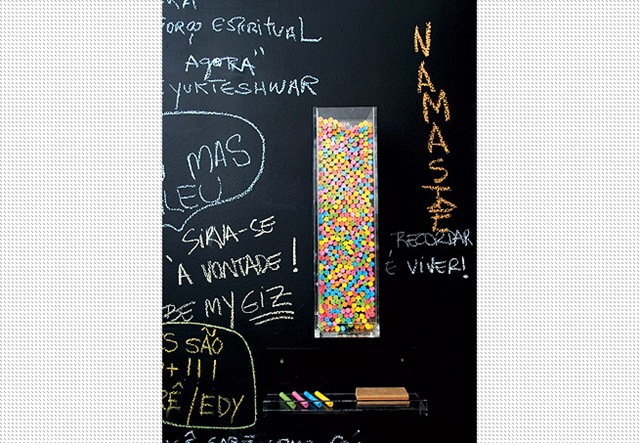 FORÇO ESPIRITUAL
AGORA"
YUKTESHWAR
MAS
LEU
SIRVA-SE
À VONTADE!
BE MY GIZ
S SÃO
+!!!
RÊ/EDY
NAMASTÊ
RECORDAR
É VIVER!